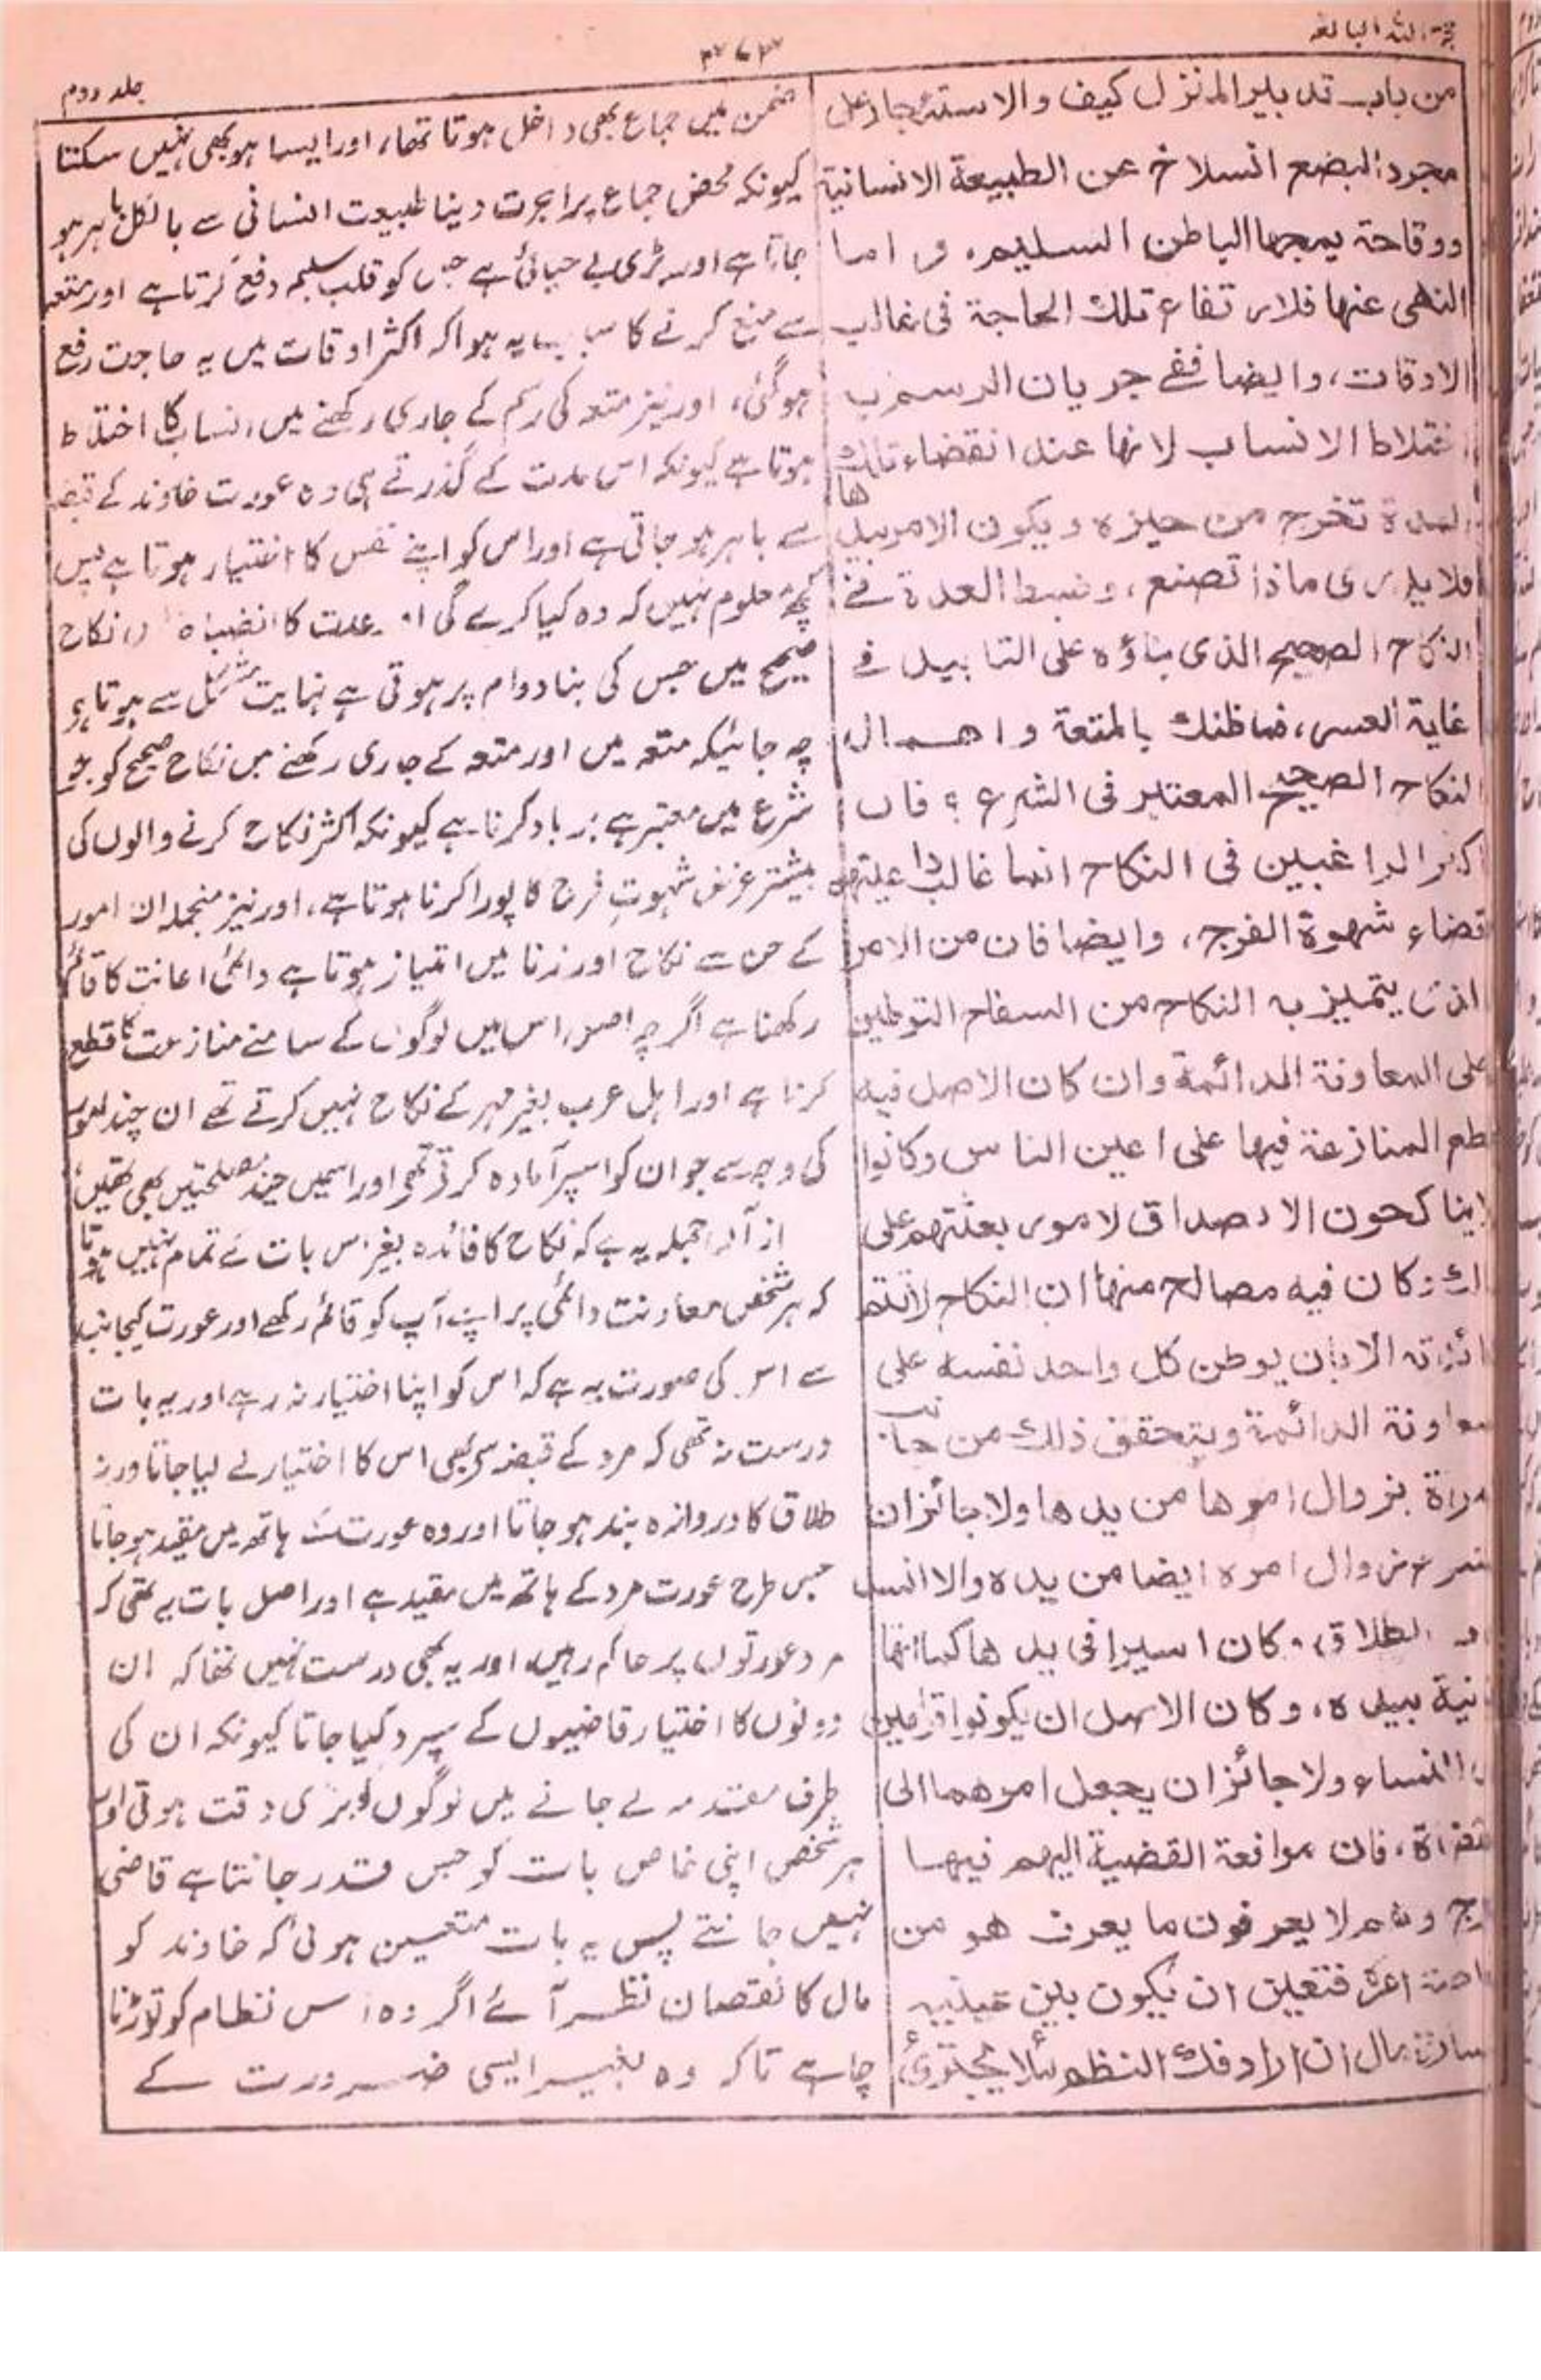 حجۃ اللہ البالغہ
جلد دوم
من باب تدبير المنزل كيف والاستئجار على
مجرد البضع انسلاخ عن الطبيعة الانسانية
ووقاحة يمجها الباطن السليم، و اما
النهى عنها فلارتفاع تلك الحاجة فى غالب
الاوقات، وايضا ففى جريان الرسم به
اختلاط الانساب لانها عند انقضاء تلك
المدة تخرج من حيزه ويكون الامر بيدها
فلا يدرى ماذا تصنع، وضبط العدة فى
النكاح الصحيح الذى بناؤه على التابيد فى
غاية العسر، فما ظنك بالمتعة و اهمال
النكاح الصحيح المعتبر فى الشرع ؟ فان
اكثر الراغبين فى النكاح انما غالب داعيتهم
قضاء شهوة الفرج، وايضا فان من الامر
الذى يتميز به النكاح من السفاح التوطين
على المعاونة الدائمة وان كان الاصل فيه
قطع المنازعة فيها على اعين الناس وكانوا
لا يناكحون الا بصداق لامور بعثتهم على
ذلك وكان فيه مصالح منها ان النكاح لا تتم
فائدته الا بان يوطن كل واحد نفسه على
معاونة الدائمة ويتحقق ذلك من جانب
المرأة بزوال امرها من يدها ولا جائز ان
يشرع زوال امره ايضا من يده والا انسد
باب الطلاق، وكان اسيرا فى يدها كما انها
عانية بيده، وكان الاصل ان يكونوا قوامين
على النساء ولا جائز ان يجعل امرهما الى
القضاة، فان مرافعة القضية اليهم فيها
حرج وهم لا يعرفون ما يعرف هو من
خاصة امره فتعين ان يكون بين عينيه
خسارة مال ان اراد فك النظم لئلا يجترئ
ضمن میں جماع بھی داخل ہوتا تھا، اور ایسا ہو بھی نہیں سکتا
کیونکہ محض جماع پر اجرت دینا طبیعت انسانی سے بالکل باہر ہو
جاتا ہے اور بڑی بے حیائی ہے جس کو قلب سلیم دفع کرتا ہے اور متعہ
سے منع کرنے کا سبب یہ ہوا کہ اکثر اوقات میں یہ حاجت رفع
ہو گئی، اور نیز متعہ کی رسم کے جاری رکھنے میں انساب کا اختلاط
ہوتا ہے کیونکہ اس مدت کے گذرتے ہی وہ عورت خاوند کے قبضہ
سے باہر ہو جاتی ہے اور اس کو اپنے نفس کا اختیار ہوتا ہے پس
کچھ معلوم نہیں کہ وہ کیا کرے گی اور عدت کا انضباط نکاح
صحیح میں جس کی بنا دوام پر ہوتی ہے نہایت مشکل سے ہوتا ہو
چہ جائیکہ متعہ میں اور متعہ کے جاری رکھنے میں نکاح صحیح کو جو
شرع میں معتبر ہے برباد کرنا ہے کیونکہ اکثر نکاح کرنے والوں کی
بیشتر غرض شہوتِ فرج کا پورا کرنا ہوتا ہے، اور نیز منجملہ ان امور
کے جن سے نکاح اور زنا میں امتیاز ہوتا ہے دائمی اعانت کا قائم
رکھنا ہے اگرچہ اصل اس میں لوگوں کے سامنے منازعت کا قطع
کرنا ہے اور اہل عرب بغیر مہر کے نکاح نہیں کرتے تھے ان چند امور
کی وجہ سے جو ان کو اسپر آمادہ کرتی تھی اور اسمیں چند مصلحتیں بھی تھیں
از آں جملہ یہ ہے کہ نکاح کا فائدہ بغیر اس بات کے تمام نہیں ہوتا
کہ ہر شخص معاونت دائمی پر اپنے آپ کو قائم رکھے اور عورت کیجانب
سے اس کی صورت یہ ہے کہ اس کو اپنا اختیار نہ رہے اور یہ بات
درست نہ تھی کہ مرد کے قبضہ سے بھی اس کا اختیار لے لیا جاتا ورنہ
طلاق کا دروازہ بند ہو جاتا اور وہ عورت کے ہاتھ میں مقید ہو جاتا
جس طرح عورت مرد کے ہاتھ میں مقید ہے اور اصل بات یہ تھی کہ
مرد عورتوں پر حاکم رہیں، اور یہ بھی درست نہیں تھا کہ ان
دونوں کا اختیار قاضیوں کے سپرد کیا جاتا کیونکہ ان کی
طرف مقدمہ لے جانے میں لوگوں کو بڑی دقت ہوتی اور
ہر شخص اپنی خاص بات کو جس قدر جانتا ہے قاضی
نہیں جانتے پس یہ بات متعین ہوئی کہ خاوند کو
مال کا نقصان نظر آئے اگر وہ اس نظام کو توڑنا
چاہے تاکہ وہ بغیر ایسی ضرورت کے